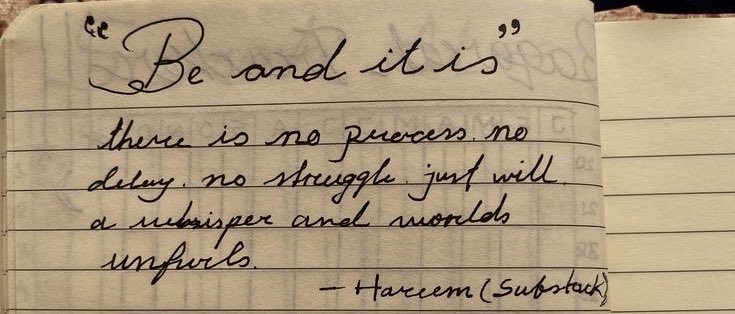 “Be and it is”
there is no process. no
delay. no struggle. just will.
a whisper and worlds
unfurls.
- Hareem (Substack)